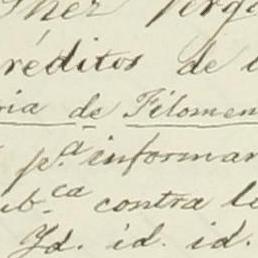 réditos de l
ria de Filomen
p.a informar
ub.ca contra le
Yd. id. id.